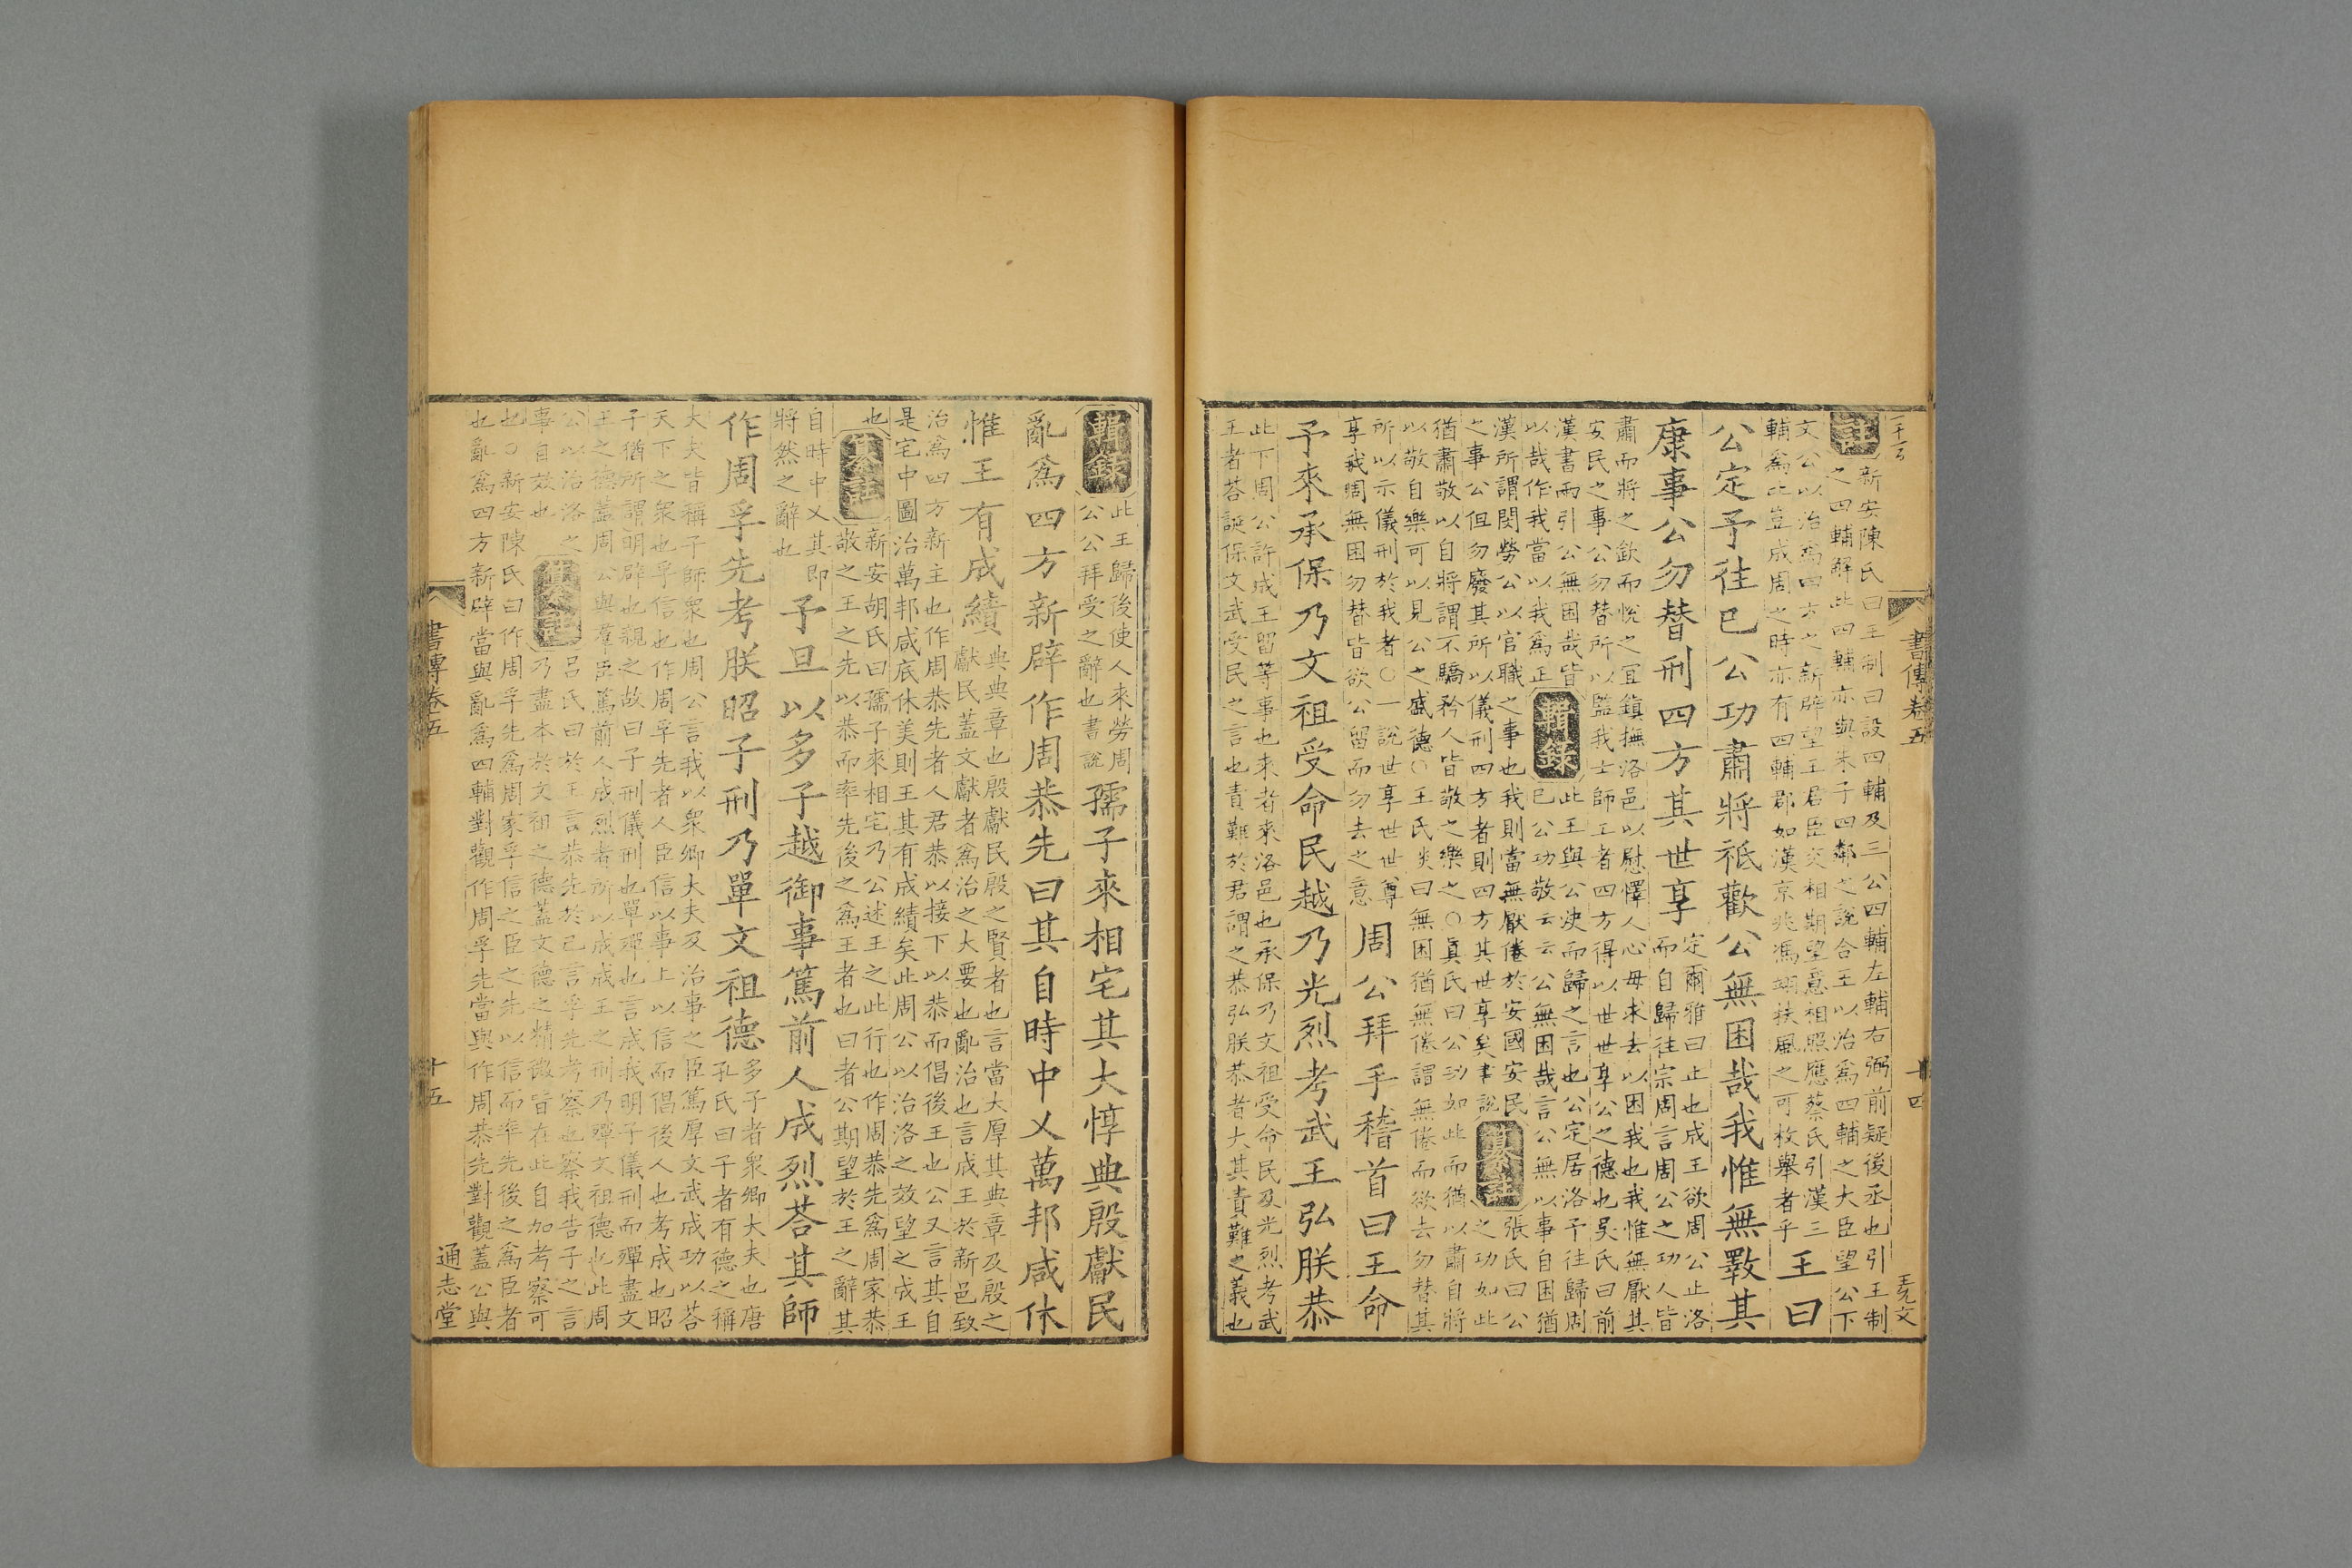 書傳卷五
十四
註
新安陳氏曰王制曰設四輔及三公四輔左輔右弼前疑後丞也引王制
之四輔解此四輔亦與朱子四鄰之說合王以治爲四輔之大臣望公下
文公以治爲四方之新辟望王君臣交相期望意相照應蔡氏引漢三
輔爲比豈成周之時亦有四輔郡如漢京兆馮翊扶風之可枚舉者乎
王曰
公定予往已公功肅將祗歡公無困哉我惟無斁其
康事公勿替刑四方其世享
定爾雅曰止也成王欲周公止洛
而自歸往宗周言周公之功人皆
肅而將之欽而悅之宜鎮撫洛邑以慰懌人心毋求去以困我也我惟無厭其
安民之事公勿替所以監我士師工者四方得以世世享公之德也吳氏曰前
漢書兩引公無困哉皆
以哉作我當以我爲正
輯錄
此王與公決而歸之言也公定居洛予往歸周
已公功敬云云公無困哉言公無以事自困猶
漢所謂閔勞公以官職之事也我則當無厭倦於安國安民
之事公但勿廢其所以儀刑四方者則四方其世享矣書說
纂註
張氏曰公
之功如此
猶肅敬以自將謂不驕矜人皆敬之樂之○眞氏曰公功如此而猶以肅自將
以敬自樂可以見公之盛德○王氏炎曰無困猶無倦謂無倦而欲去勿替其
所以示儀刑於我者○一說世享世世尊
享我周無困勿替皆欲公留而勿去之意
周公拜手稽首曰王命
予來承保乃文祖受命民越乃光烈考武王弘朕恭
此下周公許成王留等事也來者來洛邑也承保乃文祖受命民及光烈考武
王者荅誕保文武受民之言也責難於君謂之恭弘朕恭者大其責難之義也
輯錄
此王歸後使人來勞周
公公拜受之辭也書說
孺子來相宅其大惇典殷獻民
亂爲四方新辟作周恭先曰其自時中乂萬邦咸休
惟王有成績
典典章也殷獻民殷之賢者也言當大厚其典章及殷之
獻民蓋文獻者爲治之大要也亂治也言成王於新邑致
治爲四方新主也作周恭先者人君恭以接下以恭而倡後王也公又言其自
是宅中圖治萬邦咸底休美則王其有成績矣此周公以治洛之效望之成王
也
纂註
新安胡氏曰孺子來相宅乃公述王之此行也作周恭先爲周家恭
敬之王之先以恭而率先後之爲王者也曰者公期望於王之辭其
自時中乂其即
將然之辭也
予旦以多子越御事篤前人成烈荅其師
作周孚先考朕昭子刑乃單文祖德
多子者衆卿大夫也唐
孔氏曰子者有德之稱
大夫皆稱子師衆也周公言我以衆卿大夫及治事之臣篤厚文武成功以荅
天下之衆也孚信也作周孚先者人臣信以事上以信而倡後人也考成也昭
子猶所謂明辟也親之故曰子刑儀刑也單殫也言成我明子儀刑而殫盡文
王之德蓋周公與羣臣篤前人成烈者所以成成王之刑乃殫文祖德也此周
公以治洛之
事自效也
纂註
呂氏曰於王言恭先於己言孚先考察也察我告子之言
乃盡本於文祖之德蓋文德之精微皆在此自加考察可
也○新安陳氏曰作周孚先爲周家孚信之臣之先以信而率先後之爲臣者
也亂爲四方新辟當與亂爲四輔對觀作周孚先當與作周恭先對觀蓋公與
書傳卷五
十五
通志堂